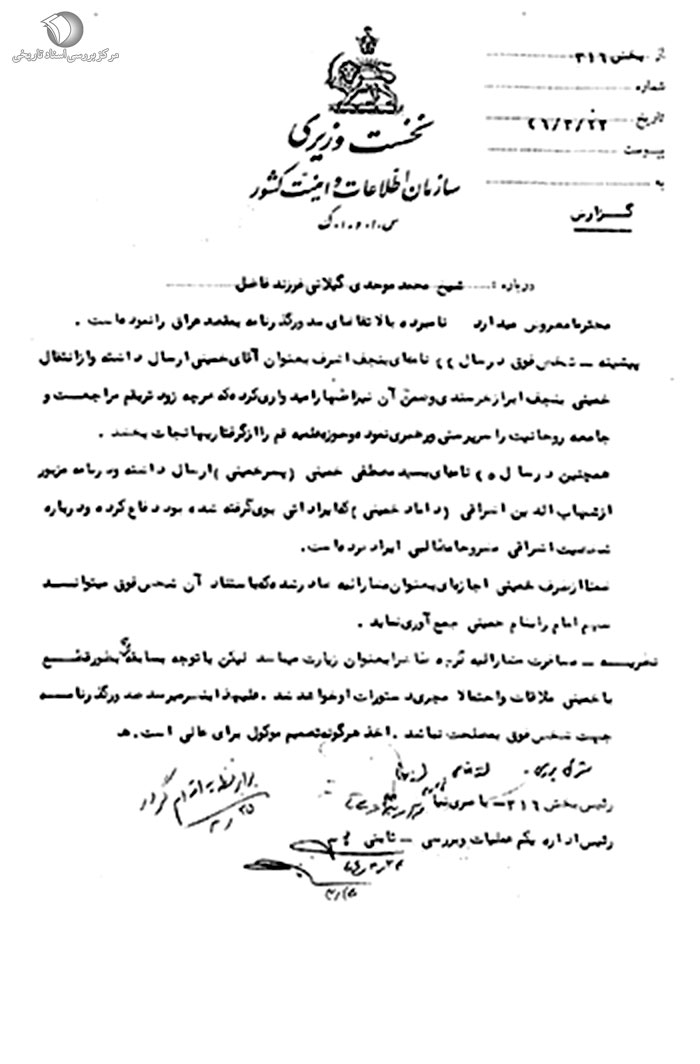 مرکز بررسی اسناد تاریخی
از بخش ۳۱۶
شماره
تاریخ ۴۶/۳/۲۳
پیوست
به
گزارش
نخست وزیری
سازمان اطلاعات و امنیت کشور
س.ا.و.ا.ک
درباره : شیخ محمد موحدی گیلانی فرزند فاضل
محترما معروض میدارد نامبرده بالا تقاضای صدور گذرنامه بمقصد عراق را نموده است .
پیشینه ــ شخص فوق در سال ۴۴ نامه‌ای بنجف اشرف بعنوان آقای خمینی ارسال داشته و از انتقال
خمینی بنجف ابراز خرسندی و ضمن آن نیز اظهار امیدواری کرده که هرچه زودتر بقم مراجعت و
جامعه روحانیت را سرپرستی و رهبری نموده و حوزه علمیه قم را از گرفتاریها نجات بخشد .
همچنین در سال ۴۵ نامه‌ای بسید مصطفی خمینی (پسر خمینی) ارسال داشته و در نامه مزبور
از شهاب الدین اشراقی (داماد خمینی) که ایراداتی بوی گرفته شده بود دفاع کرده و درباره
شخصیت اشراقی مشروحا مطالبی ایراد کرده است.
ضمنا از طرف خمینی اجازه‌ای بعنوان مشارالیه صادر شده که باستناد آن شخص فوق میتوانسد
سهم امام را بنام خمینی جمع آوری نماید .
نظریه ــ مسافرت مشارالیه گرچه ظاهرا بعنوان زیارت میباشد لیکن با توجه بسابقه وی بطور قطع
با خمینی ملاقات و احتمالا مجری دستورات او خواهد شد . علیهذا بنظر میرسد صدور گذرنامه
جهت شخص فوق بمصلحت نباشد . اخذ هرگونه تصمیم موکول برای عالی است . هـ
رئیس بخش ۳۱۶ــ یاسری نیا
رئیس اداره یکم عملیات و بررسی ــ ثابتی